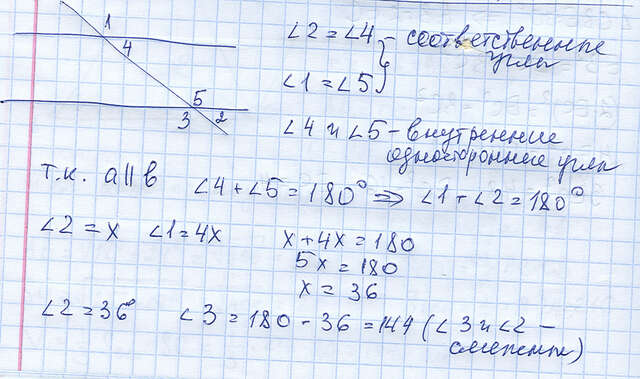 1
4
5
3 2
∠2 = ∠4 - соответственные
углы
∠1 = ∠5
∠4 и ∠5 - внутренние
односторонние углы
т.к. a || b ∠4 + ∠5 = 180° => ∠1 + ∠2 = 180°
∠2 = x ∠1 = 4x x + 4x = 180
5x = 180
x = 36
∠2 = 36° ∠3 = 180 - 36 = 144 (∠3 и ∠2 -
смежные)